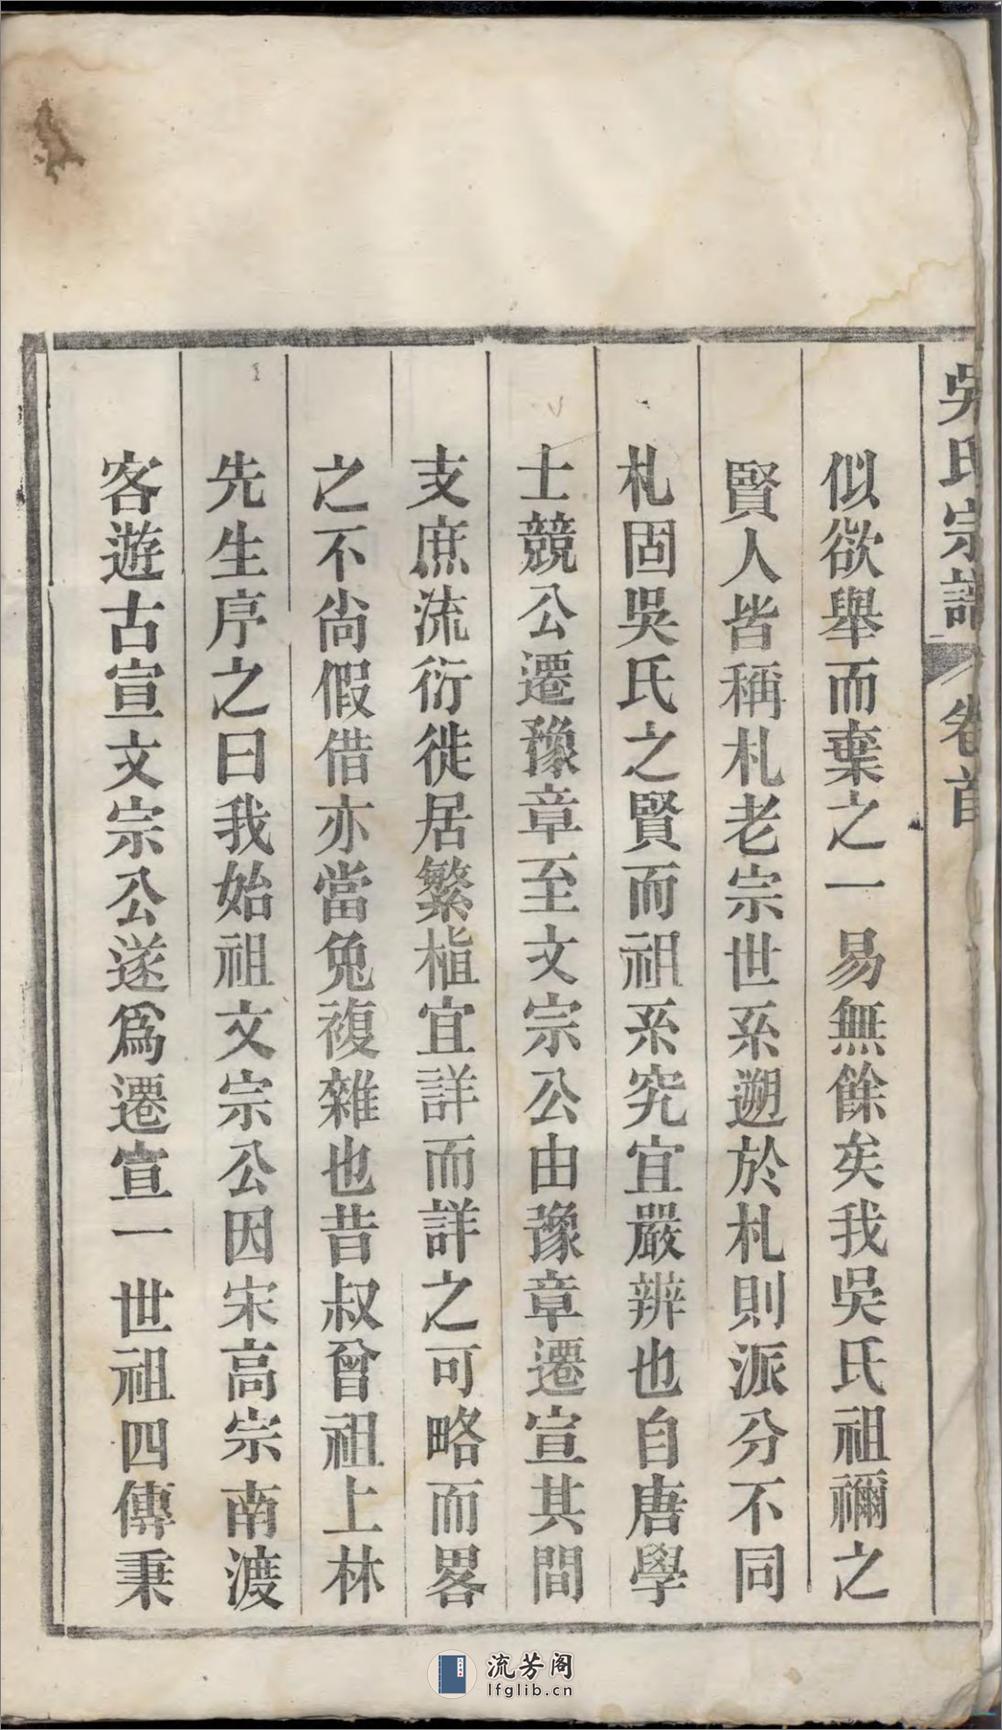 吳氏宗譜 卷首
似欲舉而棄之一易無餘矣我吳氏祖禰之
賢人皆稱札老宗世系遡於札則派分不同
札固吳氏之賢而祖系究宜嚴辨也自唐學
士競公遷豫章至文宗公由豫章遷宣其間
支庶流衍徙居繁植宜詳而詳之可略而畧
之不尙假借亦當免複雜也昔叔曾祖上林
先生序之曰我始祖文宗公因宋高宗南渡
客遊古宣文宗公遂爲遷宣一世祖四傳秉
流芳阁
lfglib.cn